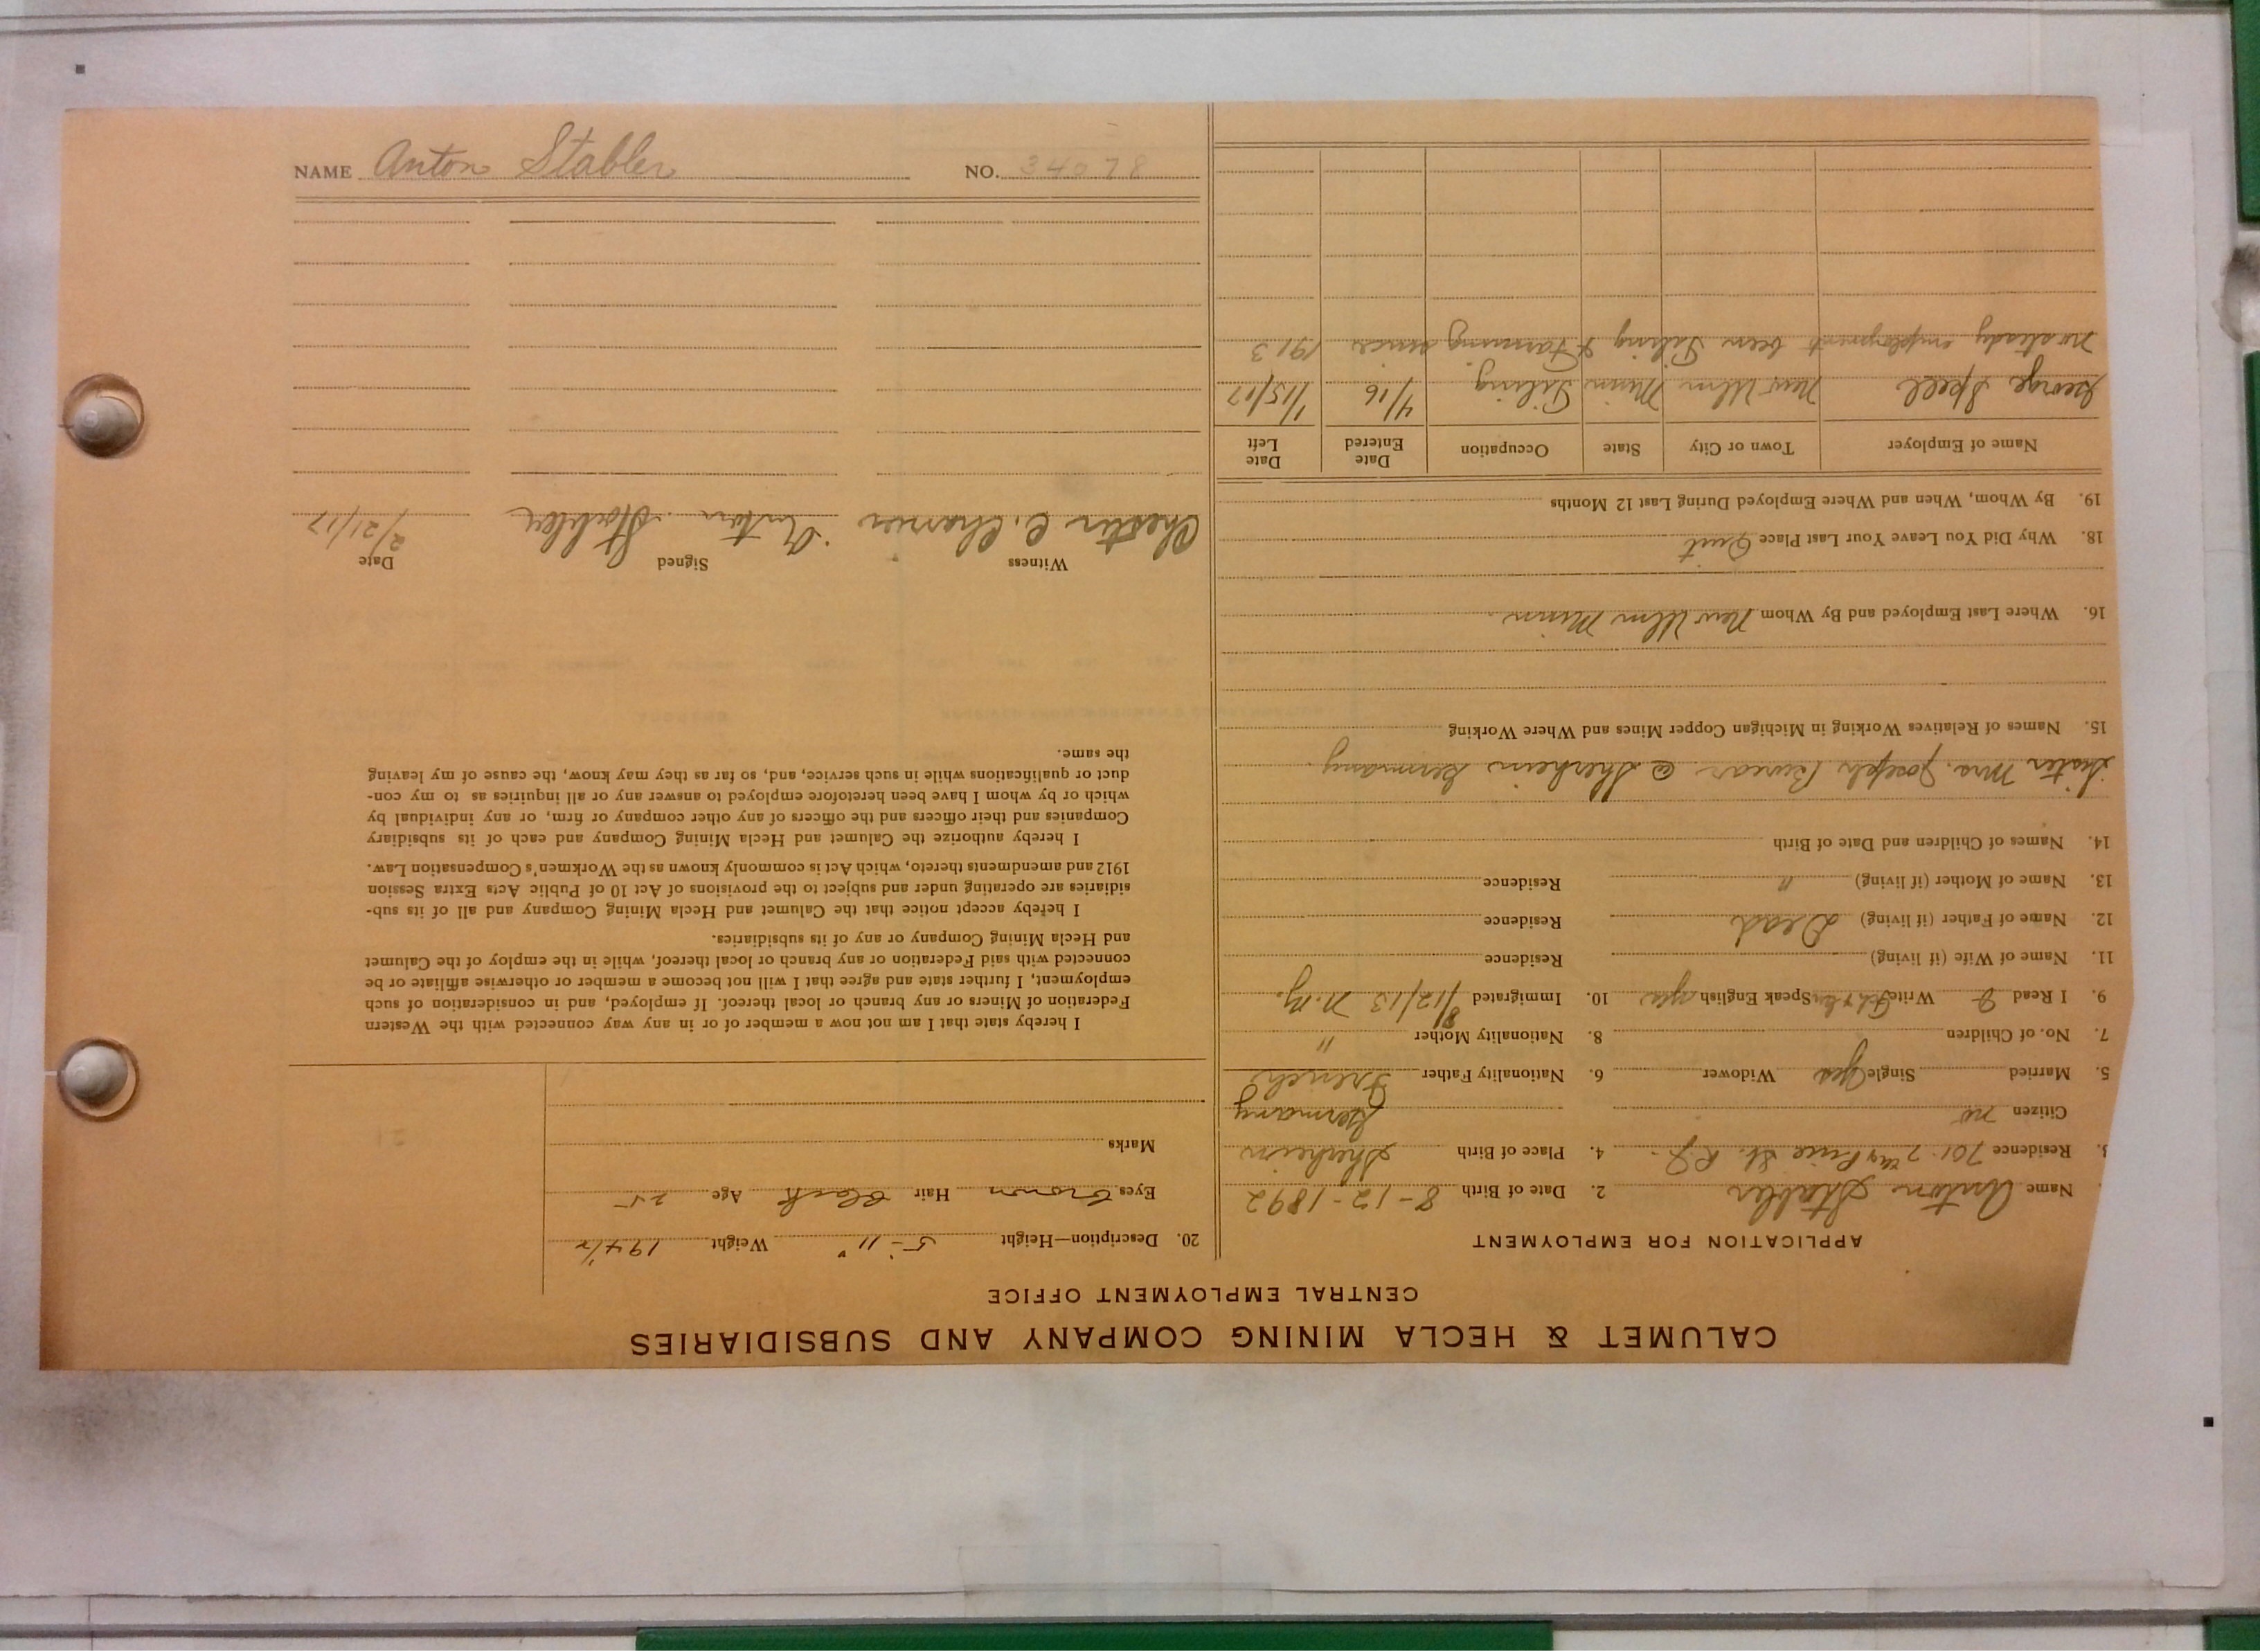 NAME Anton Stabler NO. 34078
CALUMET & HECLA MINING COMPANY AND SUBSIDIARIES
CENTRAL EMPLOYMENT OFFICE
APPLICATION FOR EMPLOYMENT
Name Anton Stabler 2. Date of Birth 8-12-1892
3. Residence 701. 7th Pine St. 4. Place of Birth
Citizen no Germany
5. Married Single yes Widower 6. Nationality Father French
7. No. of Children 8. Nationality Mother "
9. I Read Write Speak English yes 10. Immigrated 8/12/13 N.Y.
11. Name of Wife (if living) Residence
12. Name of Father (if living) Dead Residence
13. Name of Mother (if living) " Residence
14. Names of Children and Date of Birth
Sister Mrs. Joseph @ Germany.
15. Names of Relatives Working in Michigan Copper Mines and Where Working
16. Where Last Employed and By Whom New Ulm Minn.
18. Why Did You Leave Your Last Place Quit
19. By Whom, When and Where Employed During Last 12 Months
Name of Employer Town or City State Occupation Date Entered Date Left
George Spell New Ulm Minn Tiling. 4/16 1/15/17
no steady employment been Tiling & Farming since 1913
20. Description—Height 5-11" Weight 194½
Eyes brown Hair black Age 25
Marks
I hereby state that I am not now a member of or in any way connected with the Western
Federation of Miners or any branch or local thereof. If employed, and in consideration of such
employment, I further state and agree that I will not become a member or otherwise affiliate or be
connected with said Federation or any branch or local thereof, while in the employ of the Calumet
and Hecla Mining Company or any of its subsidiaries.
I hereby accept notice that the Calumet and Hecla Mining Company and all of its sub-
sidiaries are operating under and subject to the provisions of Act 10 of Public Acts Extra Session
1912 and amendments thereto, which Act is commonly known as the Workmen's Compensation Law.
I hereby authorize the Calumet and Hecla Mining Company and each of its subsidiary
Companies and their officers and the officers of any other company or firm, or any individual by
which or by whom I have been heretofore employed to answer any or all inquiries as to my con-
duct or qualifications while in such service, and, so far as they may know, the cause of my leaving
the same.
Witness Signed Date
Chester C. Anton Stabler 2/21/17